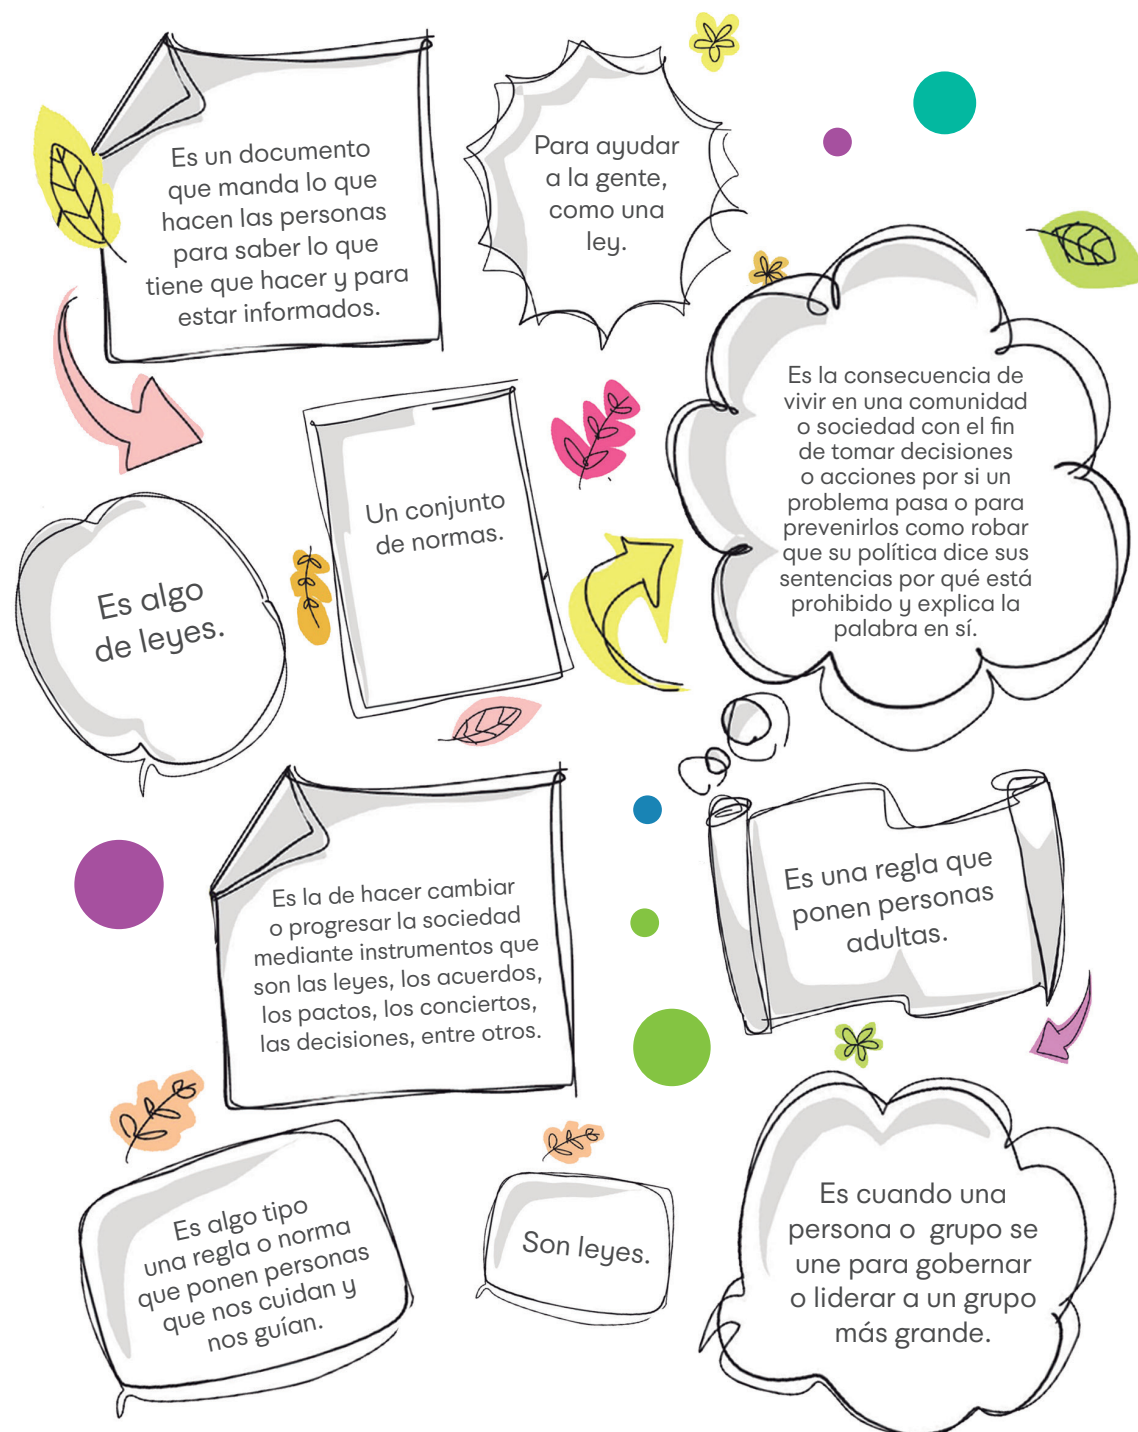 Es un documento
que manda lo que
hacen las personas
para saber lo que
tiene que hacer y para
estar informados.
Para ayudar
a la gente,
como una
ley.
Es la consecuencia de
vivir en una comunidad
o sociedad con el fin
de tomar decisiones
o acciones por si un
problema pasa o para
prevenirlos como robar
que su política dice sus
sentencias por qué está
prohibido y explica la
palabra en sí.
Un conjunto
de normas.
Es algo
de leyes.
Es la de hacer cambiar
o progresar la sociedad
mediante instrumentos que
son las leyes, los acuerdos,
los pactos, los conciertos,
las decisiones, entre otros.
Es una regla que
ponen personas
adultas.
Es algo tipo
una regla o norma
que ponen personas
que nos cuidan y
nos guían.
Son leyes.
Es cuando una
persona o grupo se
une para gobernar
o liderar a un grupo
más grande.